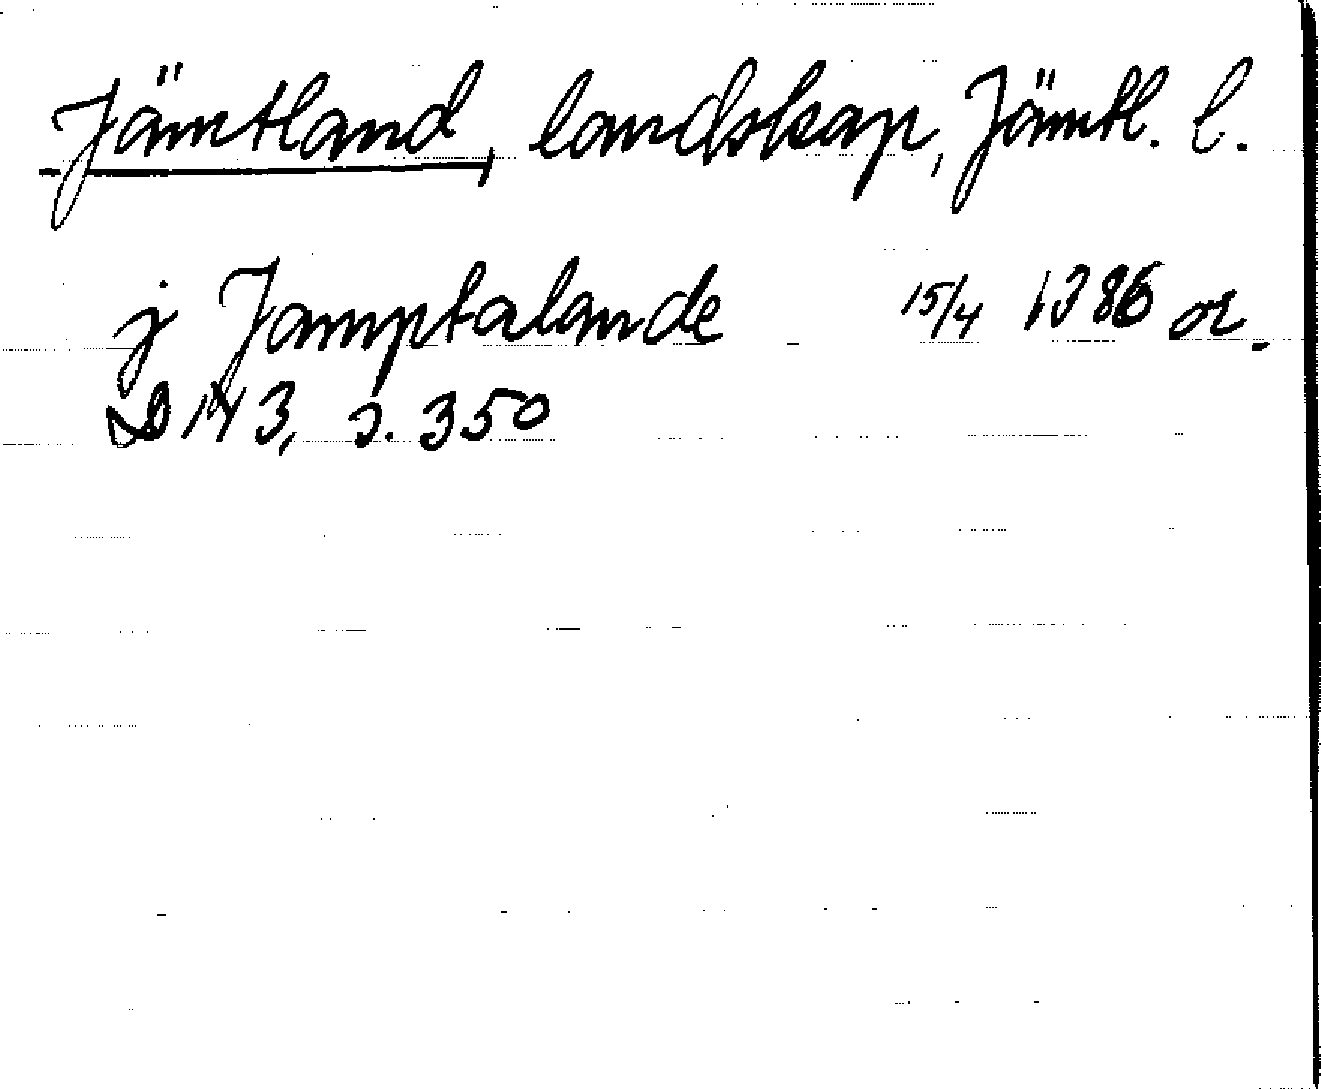 Jämtland, landskap, Jämtl. l.
j Jamptalande 15/4 1386 or.
D 143, s. 350